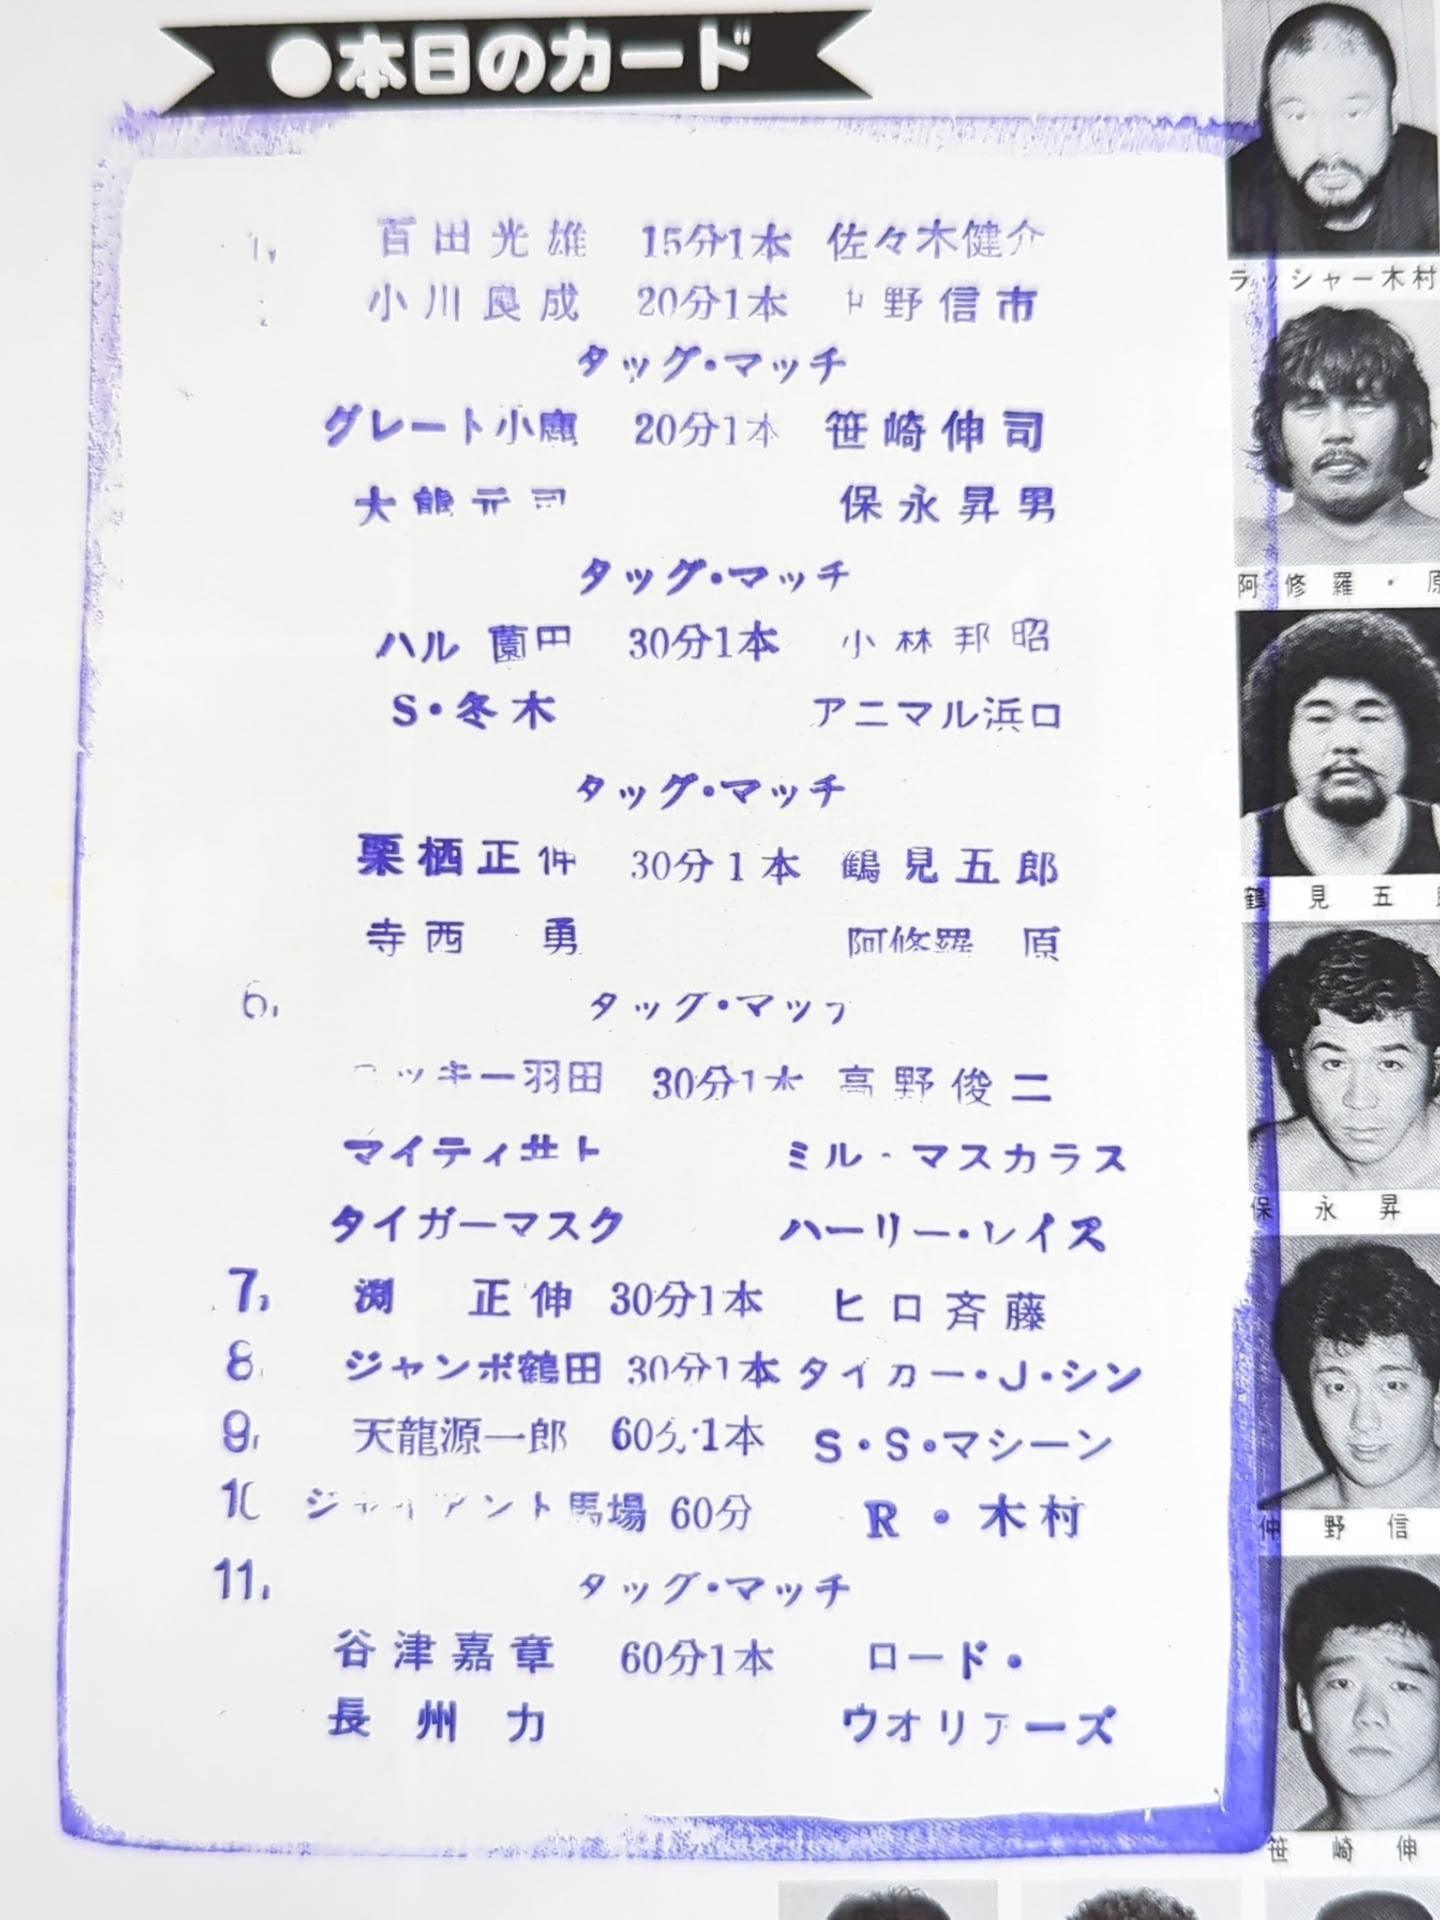 ●本日のカード
1, 百田光雄 15分1本 佐々木健介
小川良成 20分1本 野信市
タッグ・マッチ
グレート小鹿 20分1本 笹崎伸司
大熊元司 保永昇男
タッグ・マッチ
ハル 薗田 30分1本 小林邦昭
S・冬木 アニマル浜口
タッグ・マッチ
栗栖正伸 30分1本 鶴見五郎
寺西 勇 阿修羅 原
6, タッグ・マッチ
ロッキー羽田 30分1本 高野俊二
マイティ井上 ミル・マスカラス
タイガーマスク ハーリー・レイス
7, 渕 正伸 30分1本 ヒロ斉藤
8, ジャンボ鶴田 30分1本 タイガー・J・シン
9, 天龍源一郎 60分1本 S・S・マシーン
10 ジャイアント馬場 60分 R・木村
11, タッグ・マッチ
谷津嘉章 60分1本 ロード・
長州力 ウオリアーズ
ラッシャー木村
阿修羅・原
鶴見五
保永昇
仲野信
笹崎伸